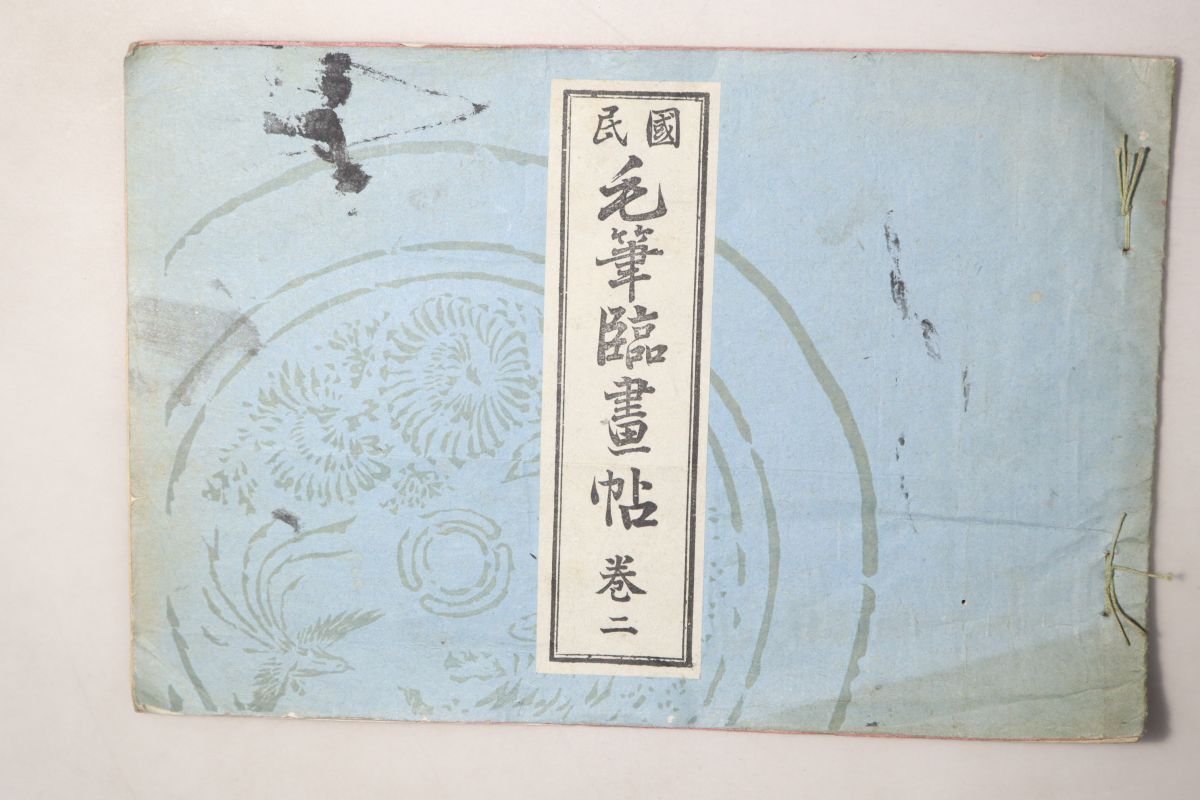 國民
毛筆臨畫帖
卷二